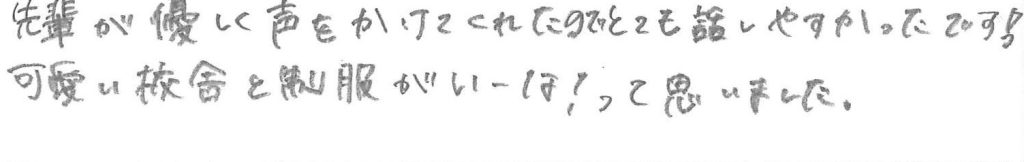 先輩が優しく声をかけてくれたのでとても話しやすかったです!!
可愛い校舎と制服がいーな!って思いました。